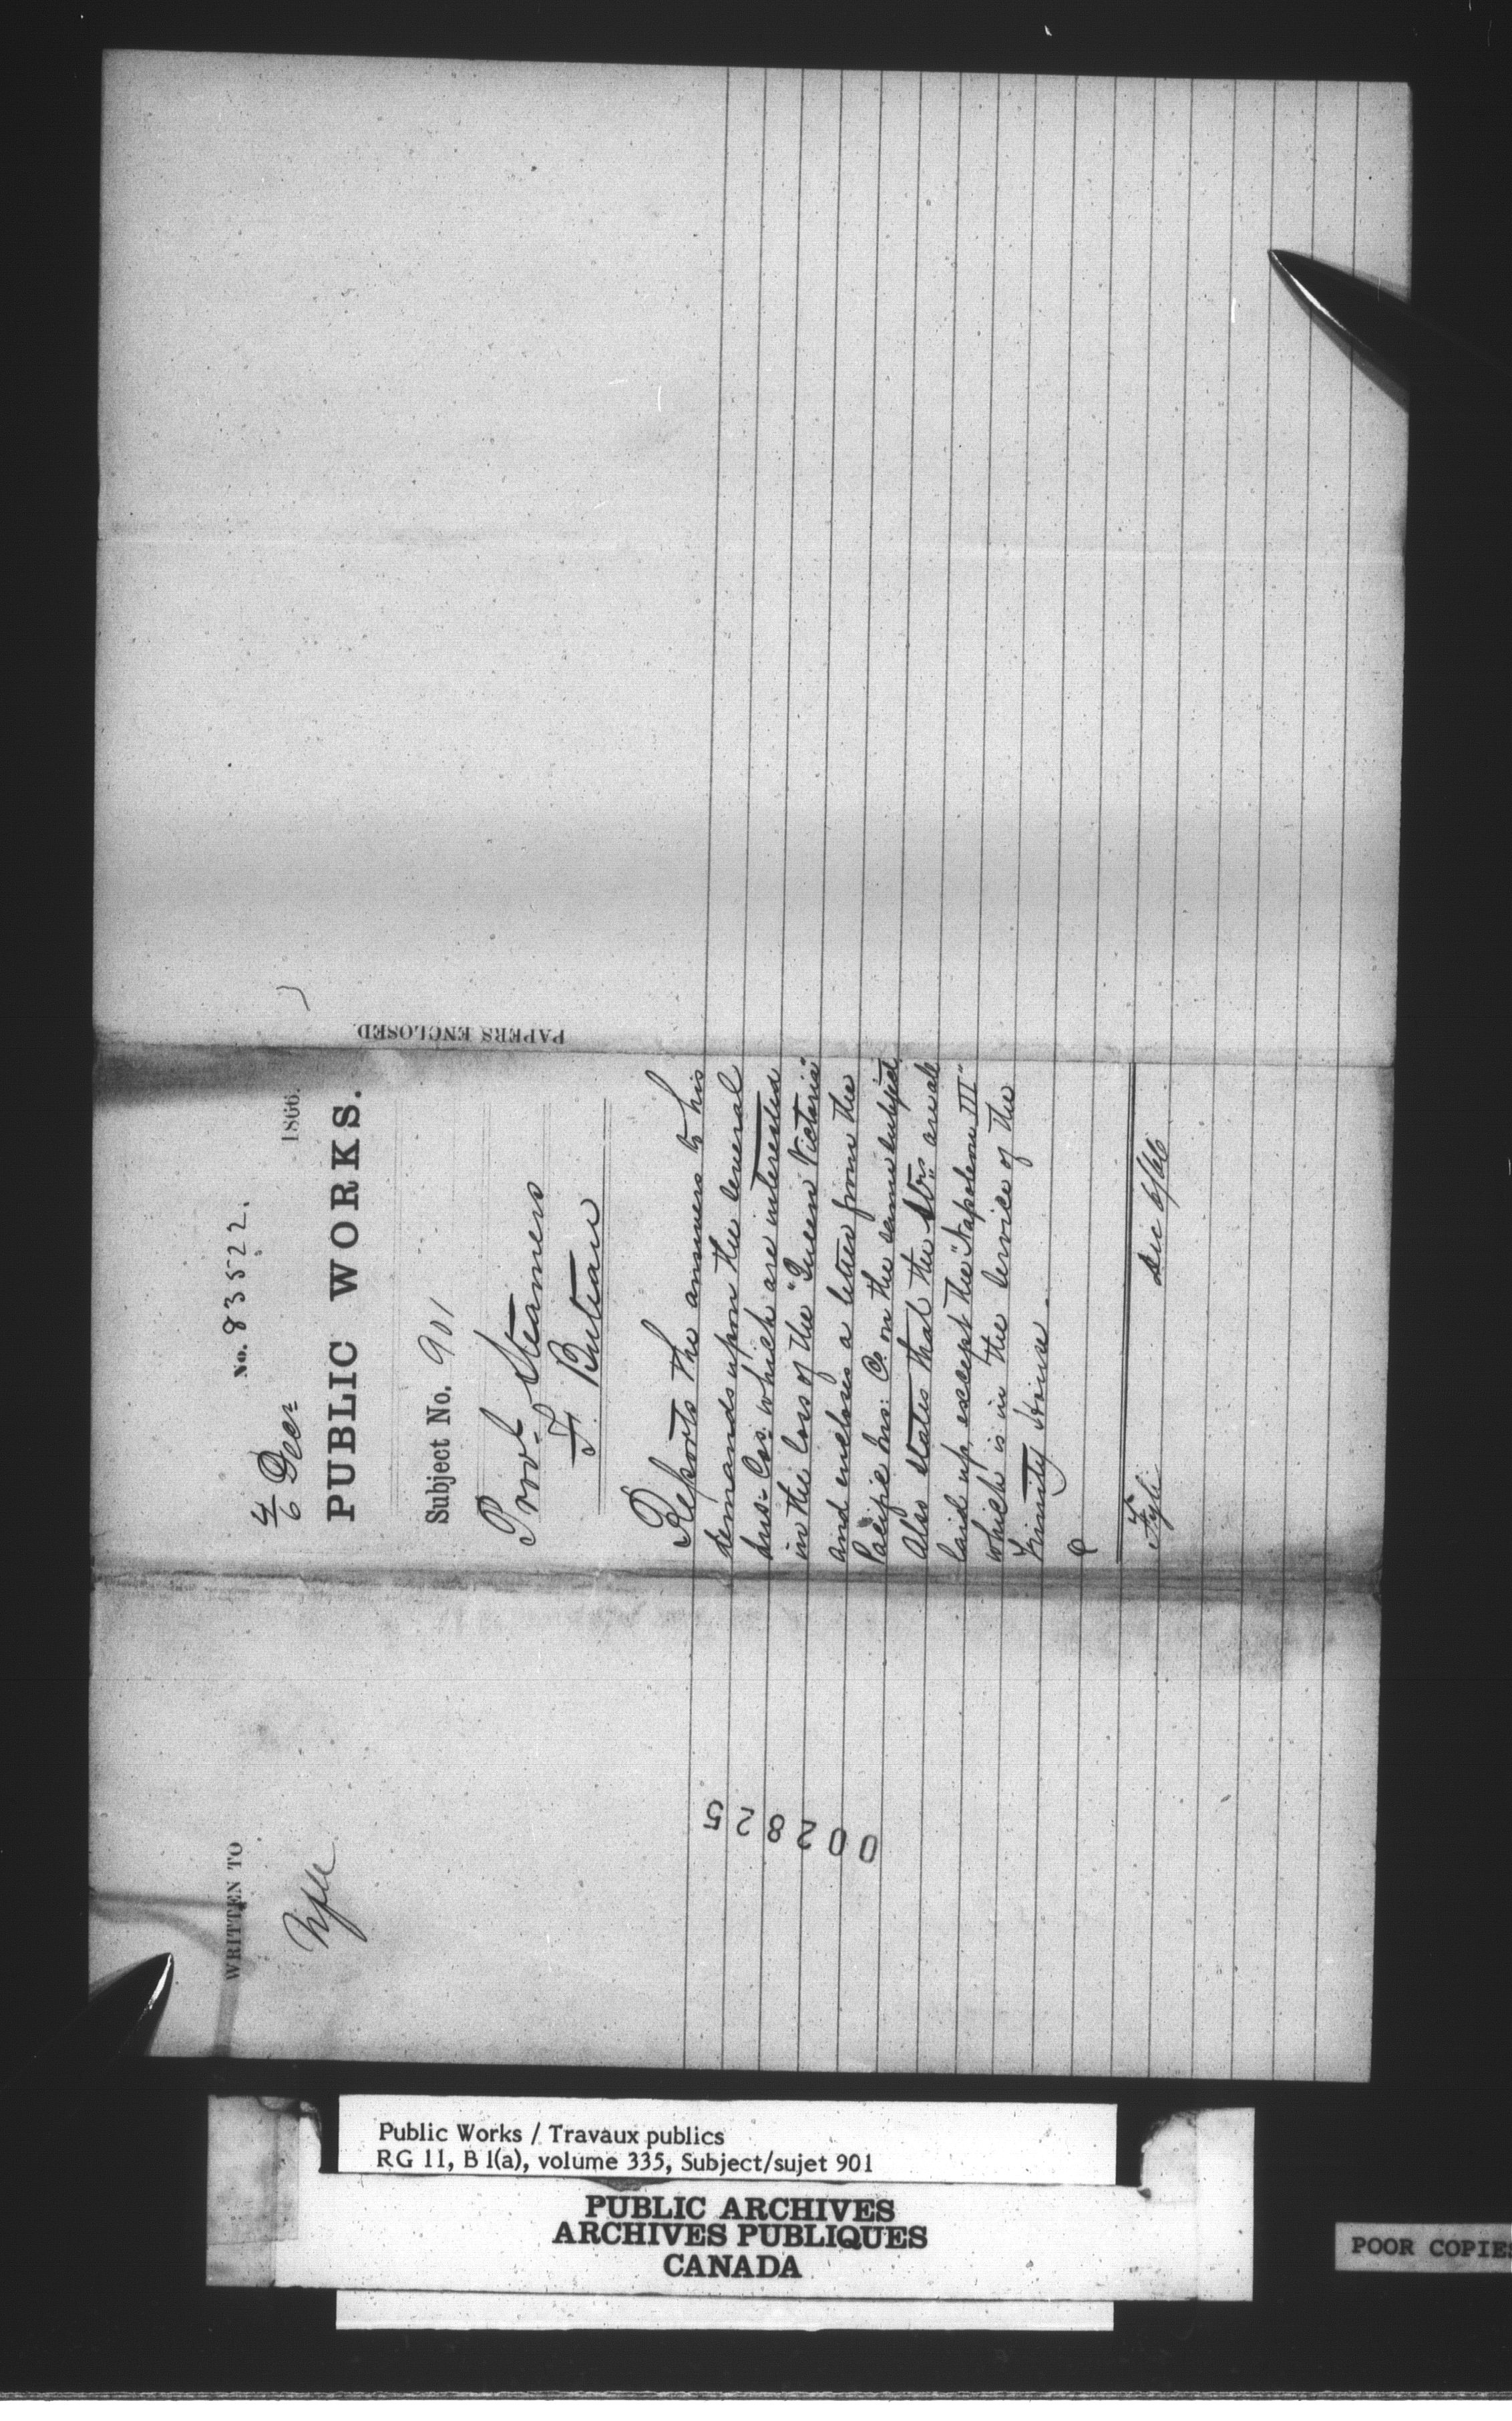 No. 83522.
4/6 Decr 1866.
PUBLIC WORKS.
Subject No. 901
Provl Steamers
F. Buteau
Reports the answers to his
demands upon the several
Ins: Cos: which are interested
in the loss of the "Queen Victoria"
and encloses a letter from the
Pacific Ins: Co. on the same subject
Also states that the Strs are all
laid up, except the "Napoleon III"
which is in the service of the
Trinity House.
Fyle
Dec 6/66
PAPERS ENCLOSED.
WRITTEN TO
002825
Public Works / Travaux publics
RG 11, B 1(a), volume 335, Subject/sujet 901
PUBLIC ARCHIVES
ARCHIVES PUBLIQUES
CANADA
POOR COPIES